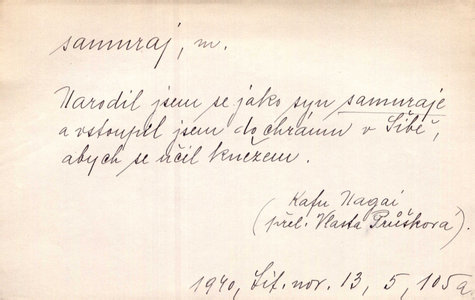 samuraj, m.
Narodil jsem se jako syn samuraje
a vstoupil jsem do chrámu v Šibě,
abych se učil knězem.
Kafu Nagai
(přel. Vlasta Průšková).
1940, Lit. nov. 13, 5, 105a